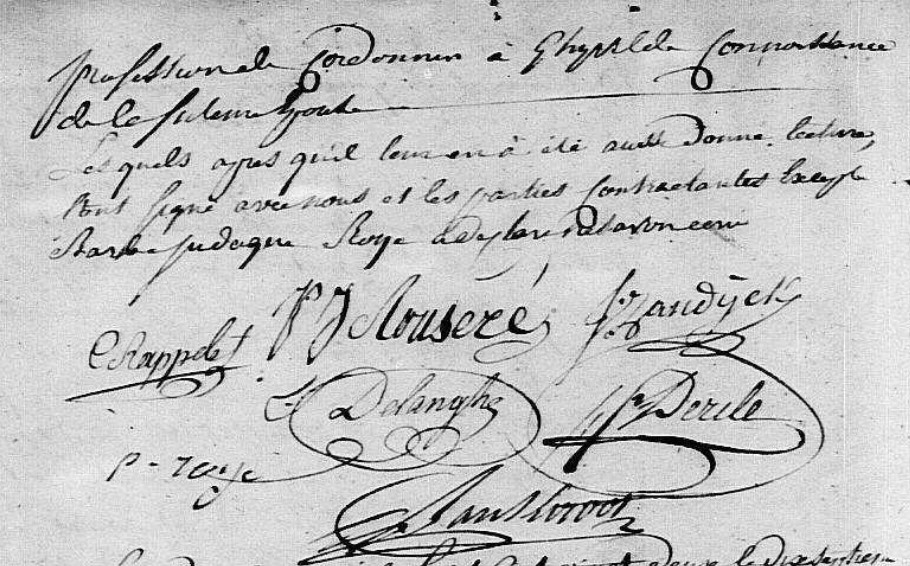 profession de Cordonnier à Ghyvelde Connoissance
de la future Epouse
Les quels apres qu'il leur en à été aussi donné lecture,
ont signé avec nous et les parties Contractantes Excepte
Barbe Roye a Declaré ne savoir écrire
P J Rouseré J: Vandijck
C Rappelet
Delanghe Derile
P - roye